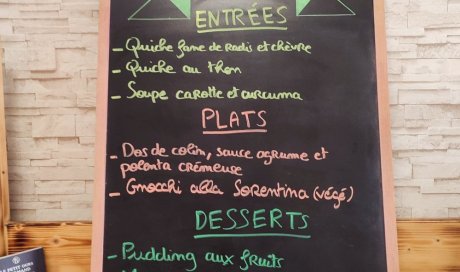 ENTRÉES
- Quiche fane de radis et chèvre
- Quiche au thon
- Soupe carotte et curcuma
PLATS
- Dos de colin, sauce agrume et
polenta crémeuse
- Gnocchi alla Sorentina (végé)
DESSERTS
- Pudding aux fruits